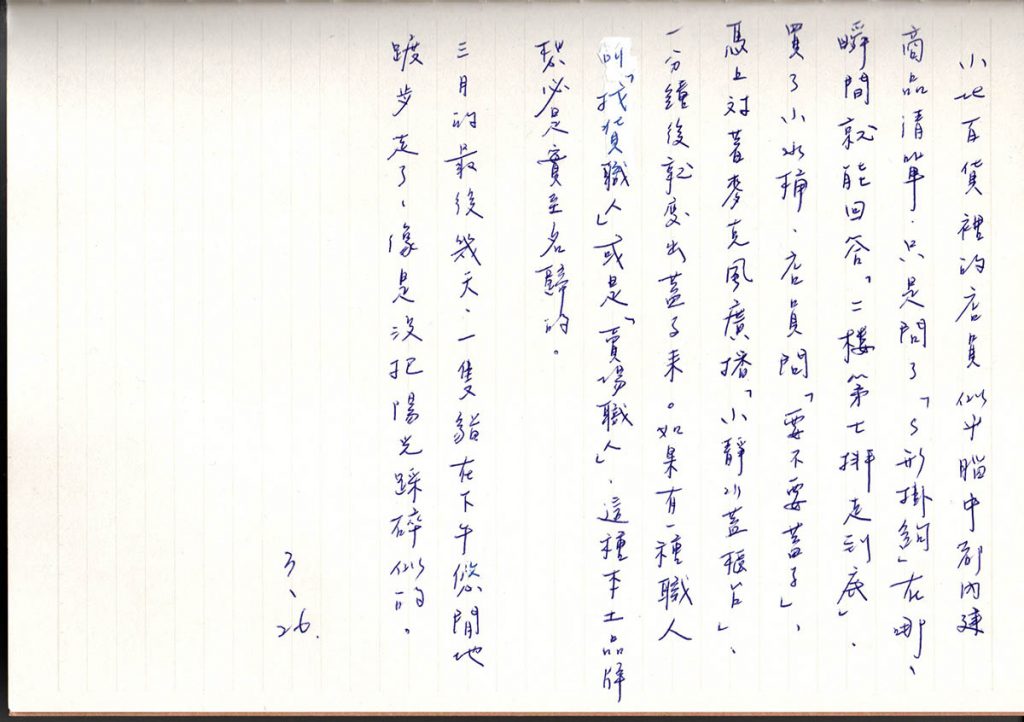 小北百貨裡的店員似乎腦中都內建
商品清單,只是問了「S形掛鉤」在哪、
瞬間就能回答「二樓第七排走到底」、
買了小水桶、店員問「要不要蓋子」、
馬上對著麥克風廣播「小靜水蓋櫃台」、
一分鐘後就變出蓋子來。如果有一種職人
叫「找貨職人」或是「賣場職人」、這種本土品牌
想必是實至名歸的。
三月的最後幾天、一隻貓在下午悠閒地
踱步走了、像是沒把陽光踩碎似的。
3、26.